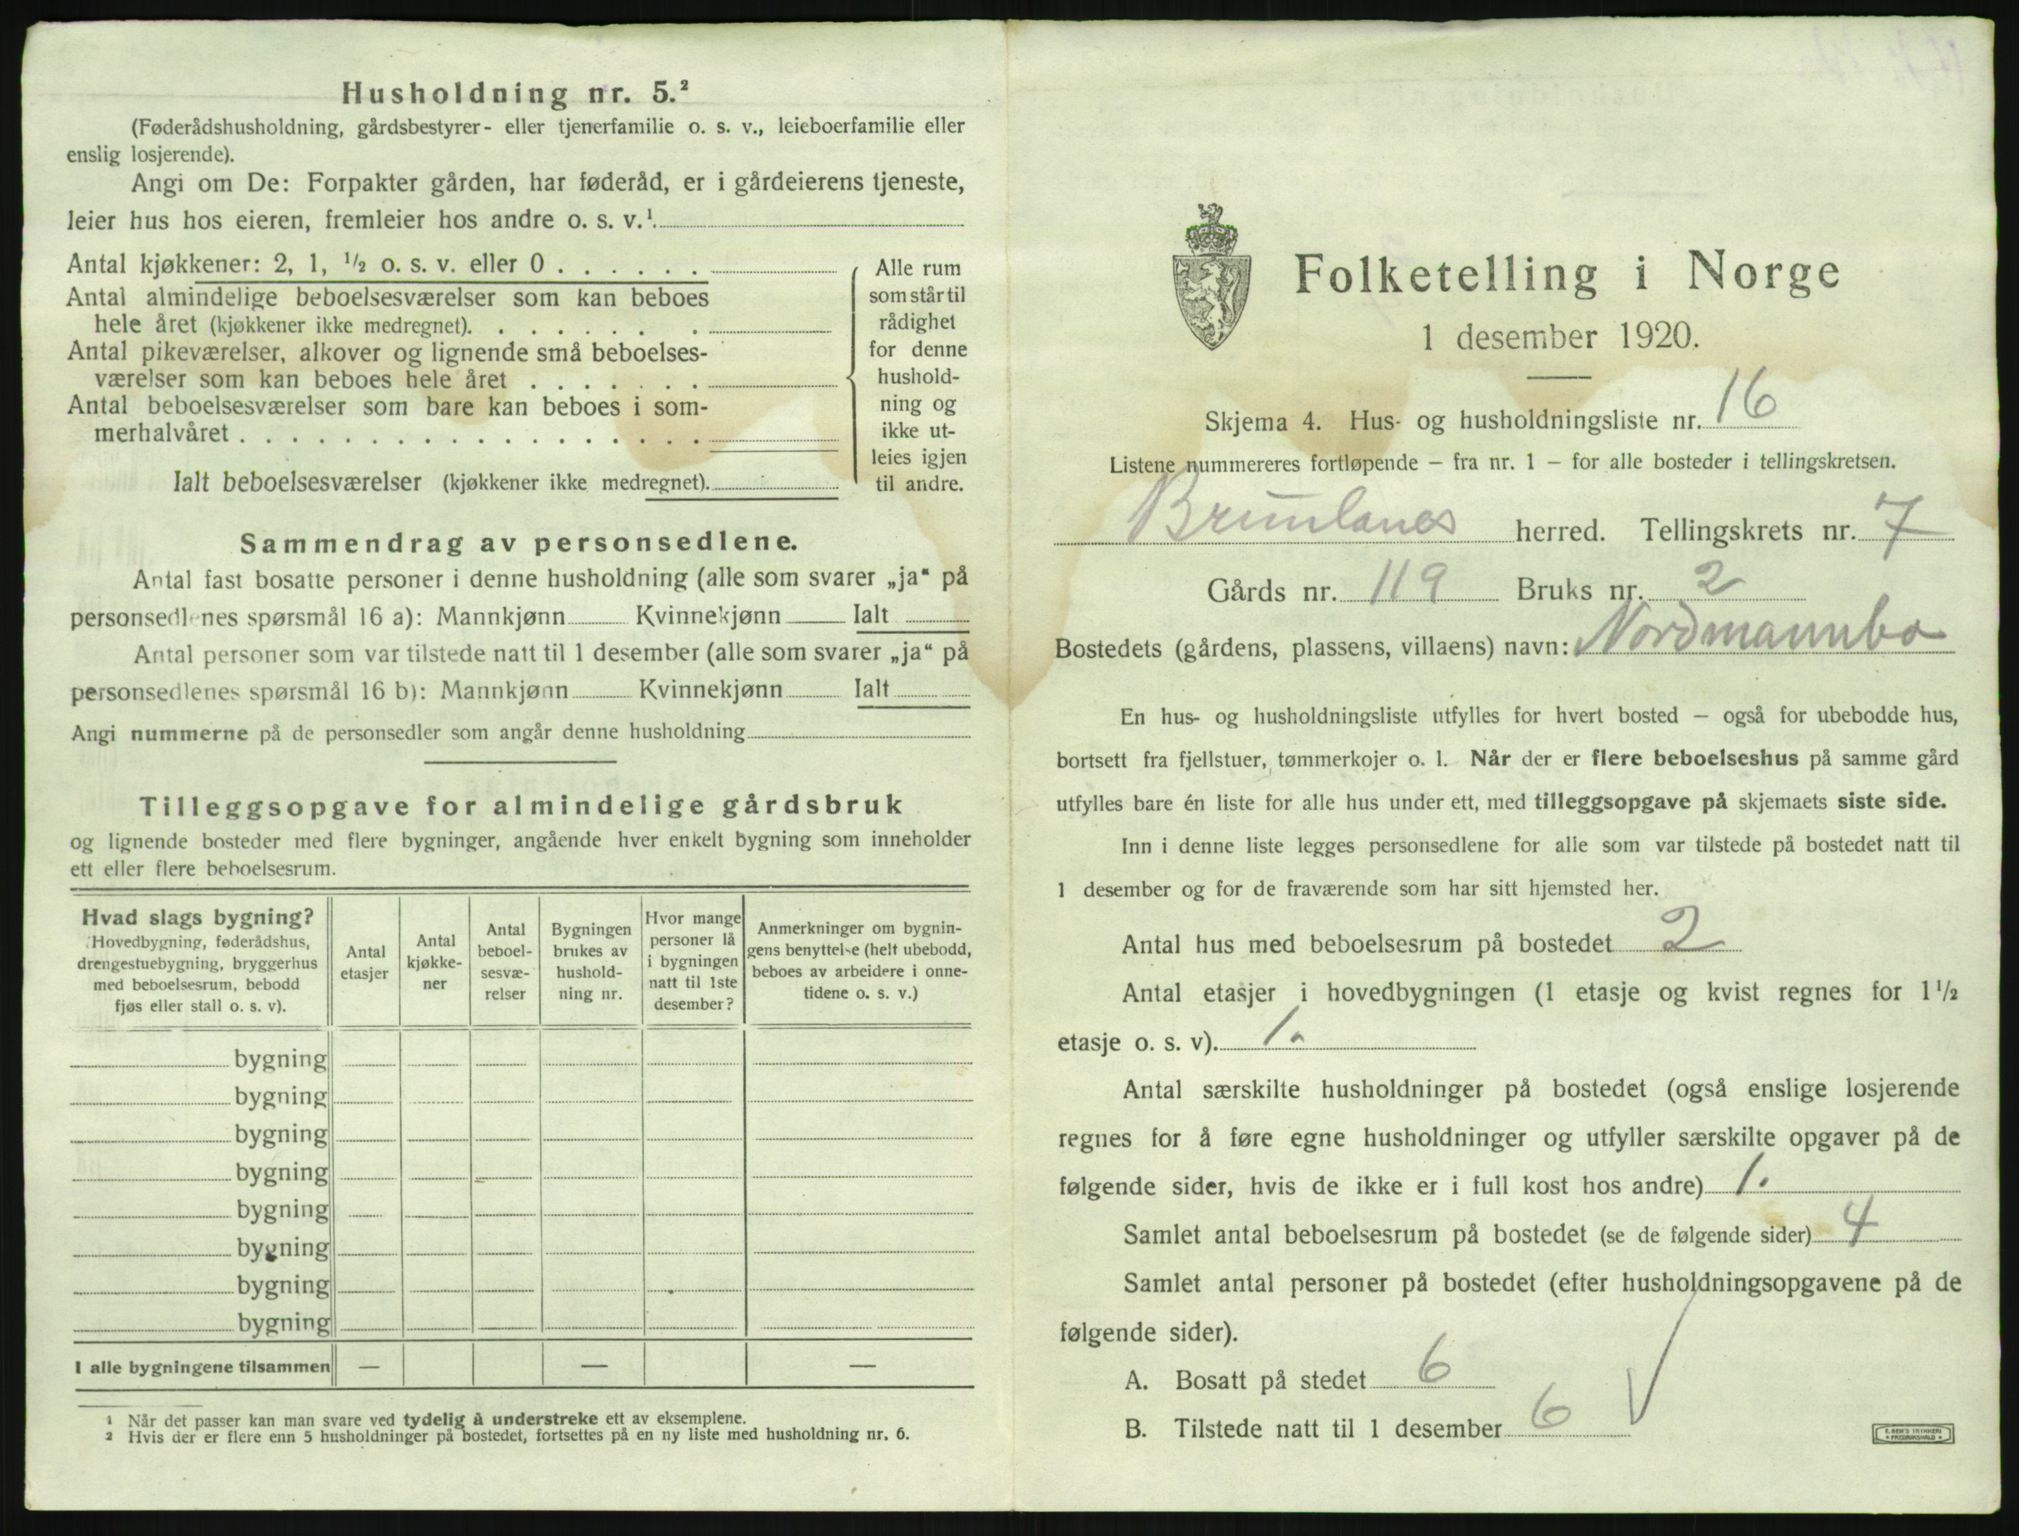 Husholdning nr. 5.²
(Føderådshusholdning, gårdsbestyrer- eller tjenerfamilie o. s. v., leieboerfamilie eller
enslig losjerende).
Angi om De: Forpakter gården, har føderåd, er i gårdeierens tjeneste,
leier hus hos eieren, fremleier hos andre o. s. v.¹
Antal kjøkkener: 2, 1, ½ o. s. v. eller 0 . . . . . .
Antal almindelige beboelsesværelser som kan beboes
hele året (kjøkkener ikke medregnet). . . . . . . . .
Antal pikeværelser, alkover og lignende små beboelses-
værelser som kan beboes hele året . . . . . . .
Antal beboelsesværelser som bare kan beboes i som-
merhalvåret . . . . . . . . . . . . . . . . . .
Ialt beboelsesværelser (kjøkkener ikke medregnet).
Alle rum
som står til
rådighet
for denne
hushold-
ning og
ikke ut-
leies igjen
til andre.
Sammendrag av personsedlene.
Antal fast bosatte personer i denne husholdning (alle som svarer „ja“ på
personsedlenes spørsmål 16 a): Mannkjønn Kvinnekjønn Ialt
Antal personer som var tilstede natt til 1 desember (alle som svarer „ja“ på
personsedlenes spørsmål 16 b): Mannkjønn Kvinnekjønn Ialt
Angi nummerne på de personsedler som angår denne husholdning
Tilleggsopgave for almindelige gårdsbruk
og lignende bosteder med flere bygninger, angående hver enkelt bygning som inneholder
ett eller flere beboelsesrum.
Hvad slags bygning?
(Hovedbygning, føderådshus,
drengestuebygning, bryggerhus
med beboelsesrum, bebodd
fjøs eller stall o. s. v).
Antal
etasjer
Antal
kjøkke-
ner
Antal
beboel-
sesvæ-
relser
Bygningen
brukes av
hushold-
ning nr.
Hvor mange
personer lå
i bygningen
natt til 1ste
desember?
Anmerkninger om bygnin-
gens benyttelse (helt ubebodd,
beboes av arbeidere i onne-
tidene o. s. v.)
bygning
bygning
bygning
bygning
bygning
bygning
bygning
bygning
I alle bygningene tilsammen — — —
¹ Når det passer kan man svare ved tydelig å understreke ett av eksemplene.
² Hvis der er flere enn 5 husholdninger på bostedet, fortsettes på en ny liste med husholdning nr. 6.
Folketelling i Norge
1 desember 1920.
Skjema 4. Hus- og husholdningsliste nr. 16
Listene nummereres fortløpende – fra nr. 1 – for alle bosteder i tellingskretsen.
Brunlanes herred. Tellingskrets nr. 7
Gårds nr. 119 Bruks nr. 2
Bostedets (gårdens, plassens, villaens) navn: Nordmannbo
En hus- og husholdningsliste utfylles for hvert bosted – også for ubebodde hus,
bortsett fra fjellstuer, tømmerkojer o. l. Når der er flere beboelseshus på samme gård
utfylles bare én liste for alle hus under ett, med tilleggsopgave på skjemaets siste side.
Inn i denne liste legges personsedlene for alle som var tilstede på bostedet natt til
1 desember og for de fraværende som har sitt hjemsted her.
Antal hus med beboelsesrum på bostedet 2
Antal etasjer i hovedbygningen (1 etasje og kvist regnes for 1½
etasje o. s. v). 1.
Antal særskilte husholdninger på bostedet (også enslige losjerende
regnes for å føre egne husholdninger og utfyller særskilte opgaver på de
følgende sider, hvis de ikke er i full kost hos andre) 1.
Samlet antal beboelsesrum på bostedet (se de følgende sider) 4
Samlet antal personer på bostedet (efter husholdningsopgavene på de
følgende sider).
A. Bosatt på stedet 6
B. Tilstede natt til 1 desember 6
E. SEM'S TRYKKERI
FREDRIKSHALD